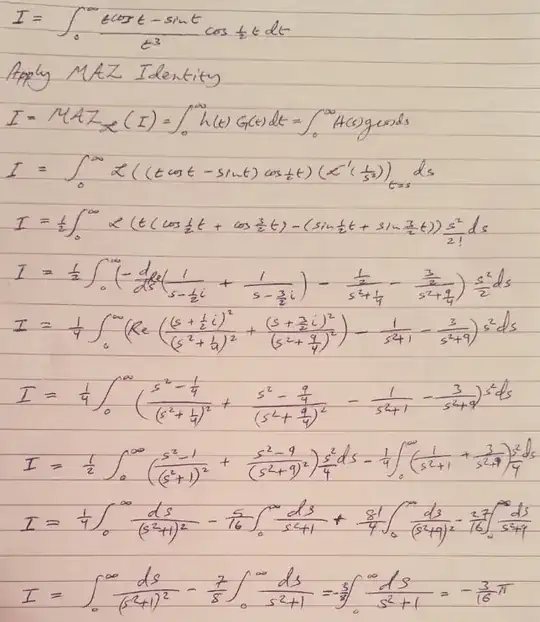 I = ∫₀^∞ (t cos t − sin t)/t³ cos ½t dt
Apply MAZ Identity
I = MAZ_ℒ(I) = ∫₀^∞ h(t) G(t) dt = ∫₀^∞ H(s) g(s) ds
I = ∫₀^∞ ℒ((t cos t − sin t) cos ½t) (ℒ⁻¹(1/s³))_{t=s} ds
I = ½ ∫₀^∞ ℒ(t(cos ½t + cos 3/2 t) − (sin ½t + sin 3/2 t)) s²/2! ds
I = ½ ∫₀^∞ (−d/ds Re(1/(s−½i) + 1/(s−3/2 i)) − ½/(s²+¼) − (3/2)/(s²+9/4)) s²/2 ds
I = ¼ ∫₀^∞ (Re((s+½i)²/(s²+¼)² + (s+3/2 i)²/(s²+9/4)²) − 1/(s²+1) − 3/(s²+9)) s² ds
I = ¼ ∫₀^∞ ((s²−¼)/(s²+¼)² + (s²−9/4)/(s²+9/4)² − 1/(s²+1) − 3/(s²+9)) s² ds
I = ½ ∫₀^∞ ((s²−1)/(s²+1)² + (s²−9)/(s²+9)²) s²/4 ds − ¼ ∫₀^∞ (1/(s²+1) + 3/(s²+9)) s²/4 ds
I = ¼ ∫₀^∞ ds/(s²+1)² − 5/16 ∫₀^∞ ds/(s²+1) + 81/4 ∫₀^∞ ds/(s²+9)² − 27/16 ∫₀^∞ ds/(s²+9)
I = ∫₀^∞ ds/(s²+1)² − 7/8 ∫₀^∞ ds/(s²+1) = −3/8 ∫₀^∞ ds/(s²+1) = −3/16 π